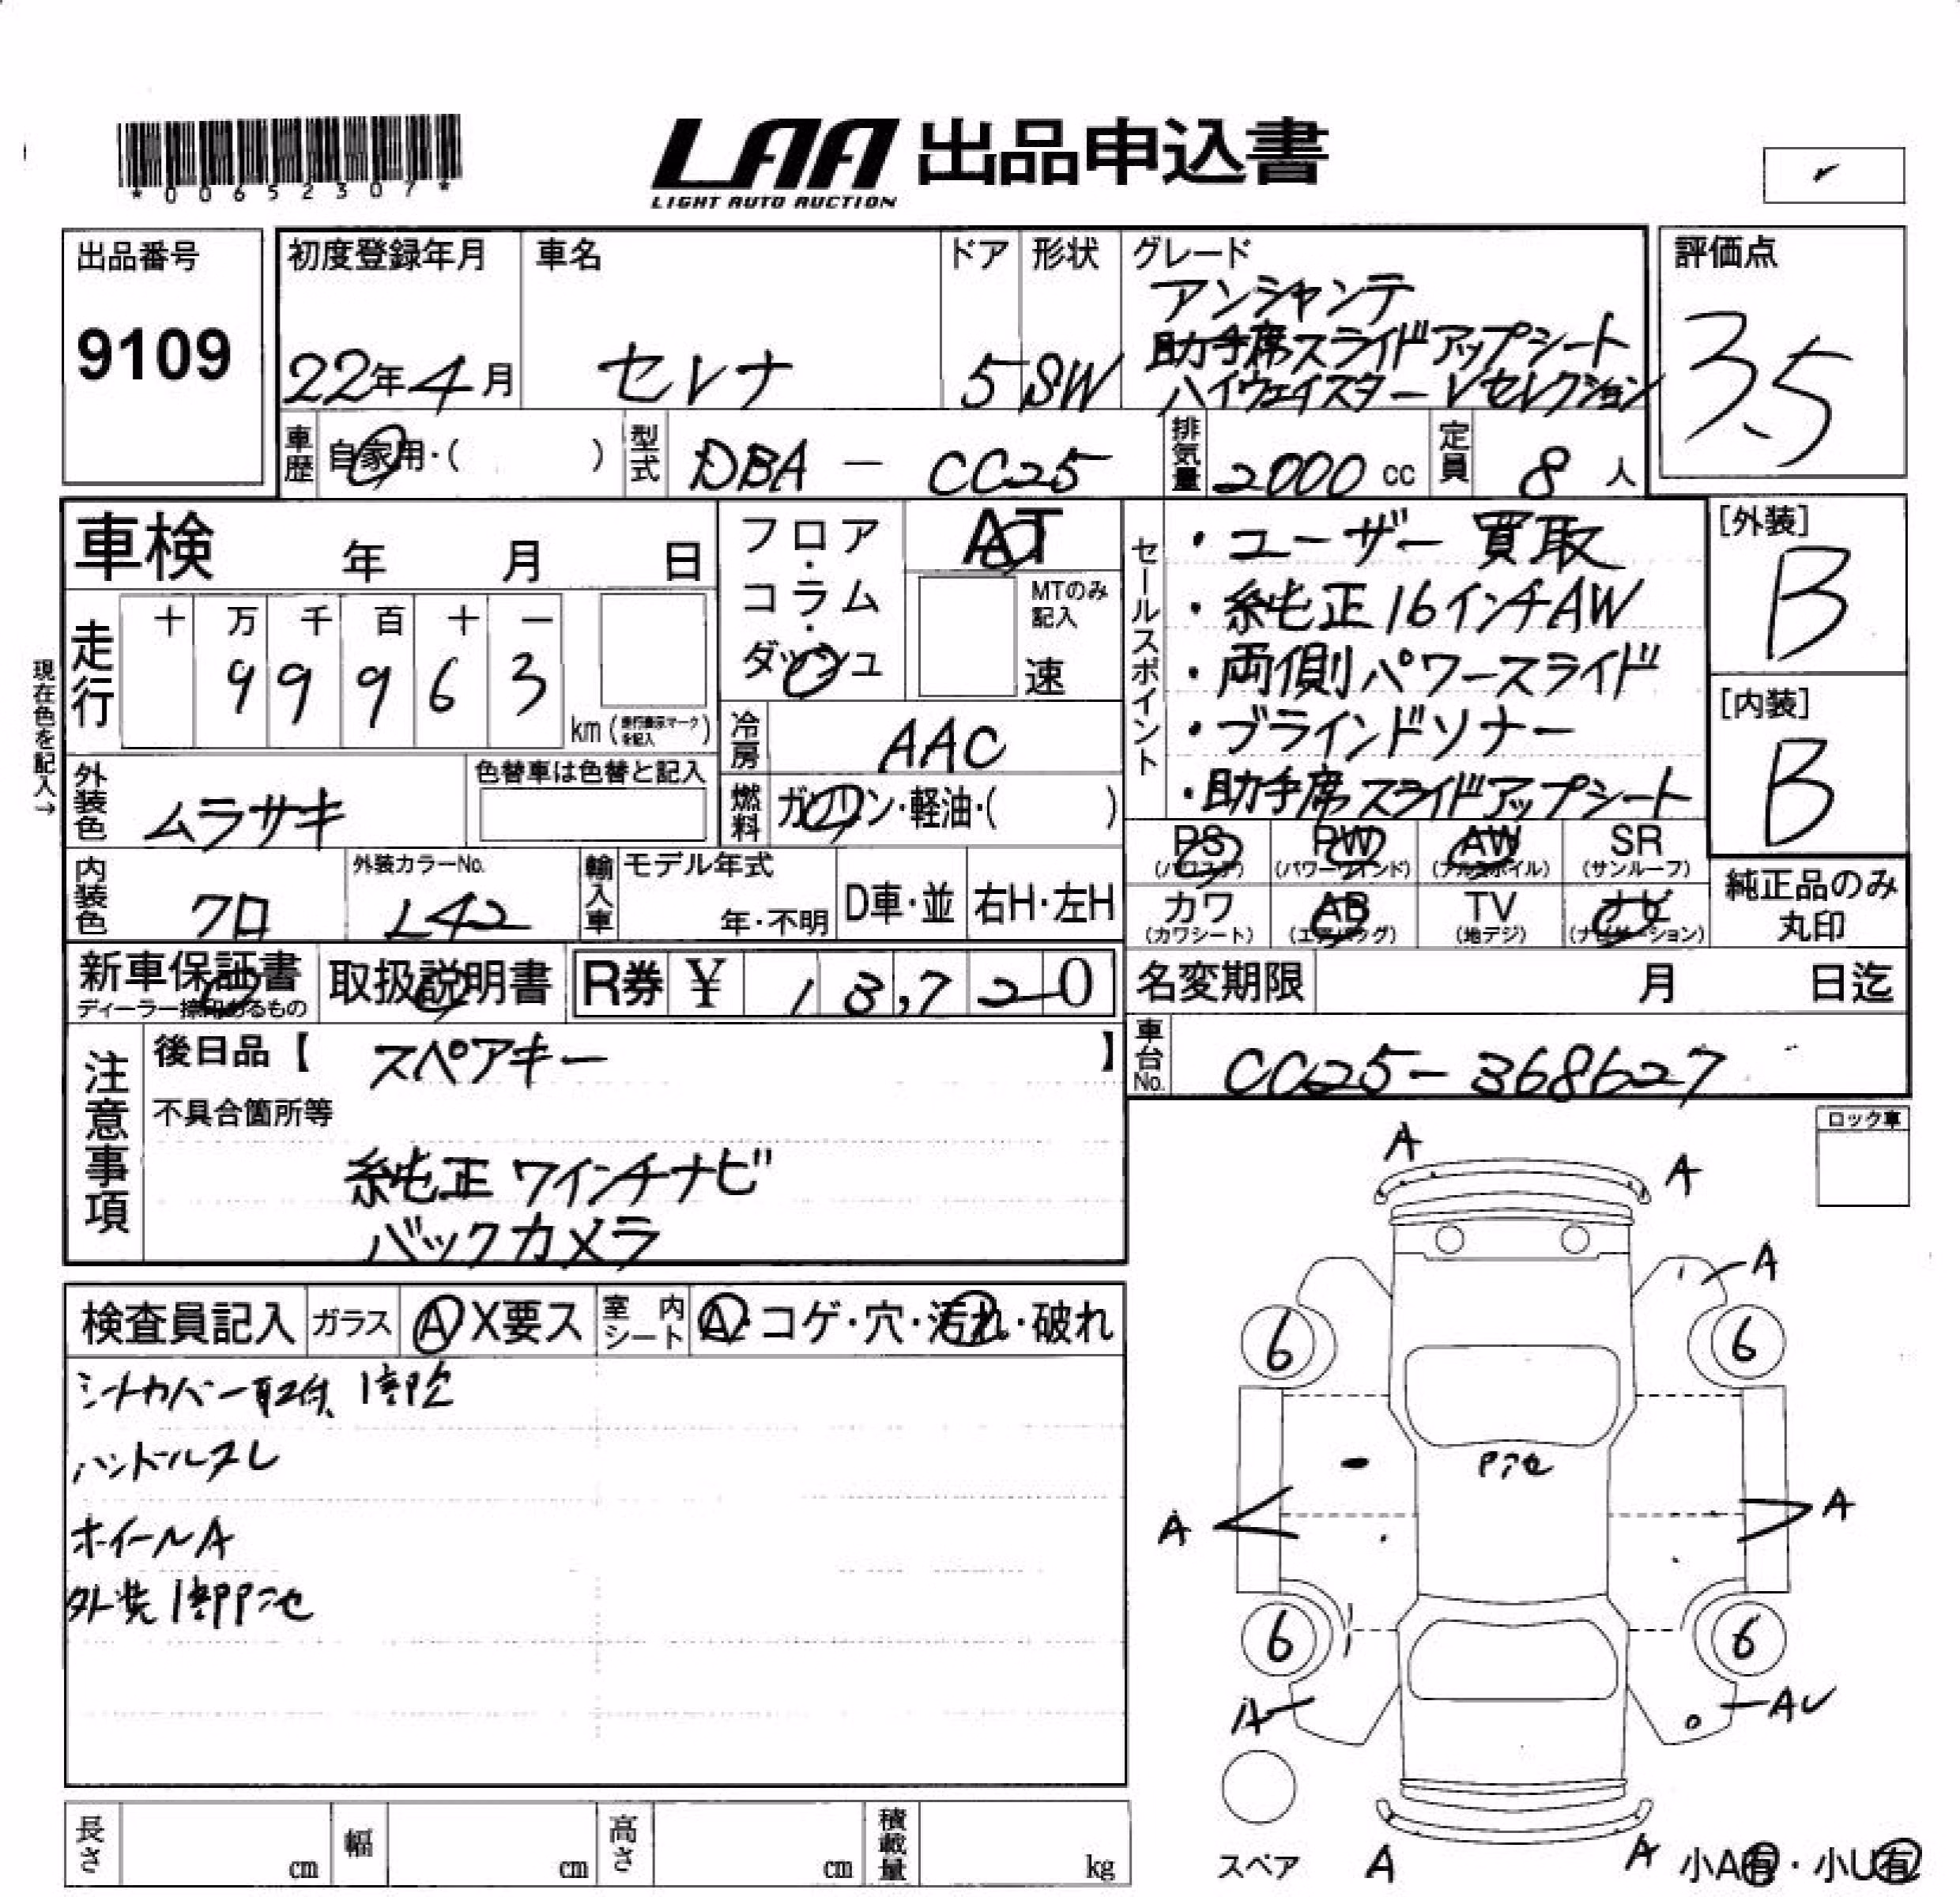 *00652307*
LAA 出品申込書
LIGHT AUTO AUCTION
出品番号
9109
初度登録年月
22年4月
車名
セレナ
ドア
5
形状
SW
グレード
アンシャンテ
助手席スライドアップシート
ハイウェイスターVセレクション
評価点
3.5
車歴 自家用・( )
型式 DBA - CC25
排気量 2000 cc
定員 8 人
車検 年 月 日
フロア・コラム・ダッシュ
AT
MTのみ記入
速
セールスポイント
・ユーザー買取
・純正16インチAW
・両側パワースライド
・ブラインドソナー
・助手席スライドアップシート
[外装]
B
[内装]
B
現在色を記入→
走行
十 万 千 百 十 一
9 9 9 6 3
km (走行表示マークを記入)
冷房 AAC
外装色 ムラサキ
色替車は色替と記入
燃料 ガソリン・軽油・( )
内装色 クロ
外装カラーNo.
L42
輸入車
モデル年式
年・不明
D車・並
右H・左H
PS (パワステ)
PW (パワーウインド)
AW (アルミホイル)
SR (サンルーフ)
カワ (カワシート)
AB (エアバッグ)
TV (地デジ)
ナビ (ナビゲーション)
純正品のみ丸印
新車保証書
ディーラー捺印あるもの
取扱説明書
R券 ¥ 13,720
名変期限 月 日迄
車台No. CC25-368627
注意事項
後日品【 スペアキー 】
不具合箇所等
純正ワインチナビ
バックカメラ
ロック車
検査員記入
ガラス A X要ス
室内シート A・コゲ・穴・汚れ・破れ
シートカバー取付、1部
ハンドルスレ
ホイールA
外装1部
A
A
A
6
6
A
A
6
6
A
AU
スペア
A
A
小A有・小U有
長さ cm
幅 cm
高さ cm
積載量 kg